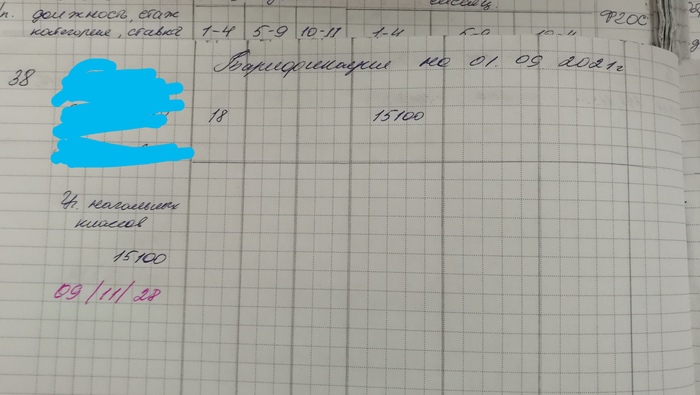 должность, стаж ФГОС
категория, ставка 1-4 5-9 10-11 1-4 5-9
38 Тарификация на 01. 09 2021г
18 15100
Уч. начальных
классов
15100
09/11/28